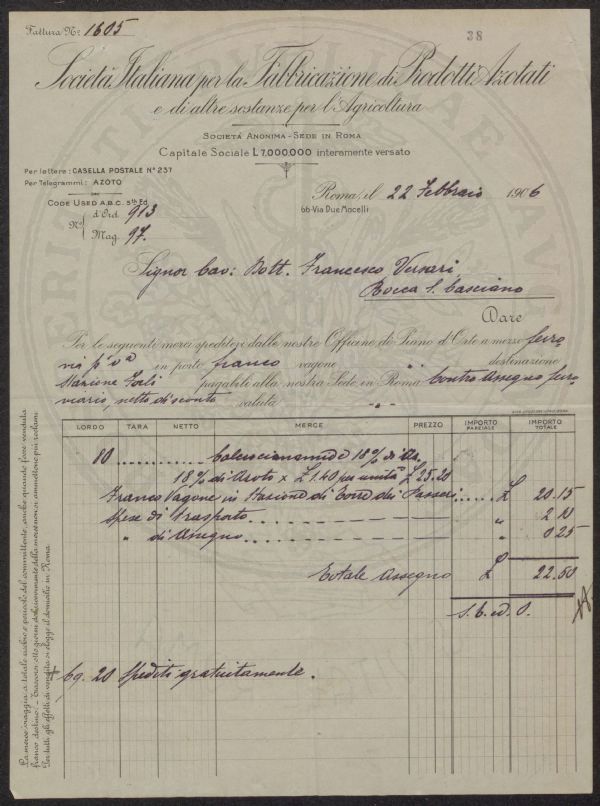 Fattura Nº 1605
38
Società Italiana per la Fabbricazione di Prodotti Azotati
e di altre sostanze per l'Agricoltura
SOCIETÀ ANONIMA - SEDE IN ROMA
Capitale Sociale L 7.000.000 interamente versato
Per lettere: CASELLA POSTALE Nº 237
Per Telegrammi: AZOTO
CODE USED A.B.C. 5th Ed.
Roma, il 22 Febbraio 1906
66-Via Due Macelli
Nº d'Ord. 913
Mag. 97.
Signor Cav: Dott. Francesco Versari
Rocca S. Casciano
Dare
Per le seguenti merci speditevi dalle nostre Officine di Piano d'Orte a mezzo ferro
via pª vª in porto franco vagone " destinazione
Stazione Forlì pagabili alla nostra Sede in Roma Contro Assegno ferro
viario, netto di sconto valuta "
LORDO TARA NETTO MERCE PREZZO IMPORTO PARZIALE IMPORTO TOTALE
80 Calciocianamide 18% di Az.
18% di Azoto x £ 1.40 per unità £ 25.20
Franco Vagone in Stazione di Torre dei Passeri £ 20.15
Spese di trasporto " 2.10
" di Assegno " 0.25
Totale Assegno £ 22.50
S. E. ed O.
+ Cg. 20 Spediti gratuitamente.
La merce viaggia a totale rischio e pericolo del committente, anche quando fosse venduta
franco destino. - Trascorsi otto giorni dal ricevimento della merce non si ammettono più reclami
Per tutti gli effetti di vendita si elegge il domicilio in Roma.